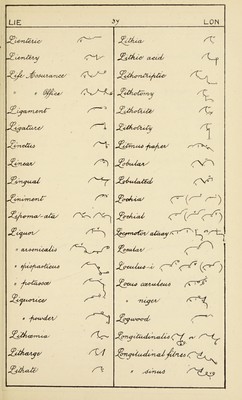 LIE
37
LON
Lienteric
Lientery
Life Assurance
" " Office
Ligament
Ligature
Linctus
Linear
Lingual
Liniment
Lipoma-ata
Liquor
" arsenicalis
" episparticus
" potassæ
Liquorice
" powder
Lithæmia
Litharge
Lithate
Lithia
Lithic acid
Lithontriptic
Lithotomy
Lithotrite
Lithotrity
Litmus paper
Lobular
Lobulated
Lochia
Lochial
Locomotor ataxy
Locular
Loculus-i
Locus cæruleus
" niger
Logwood
Longitudinalis
Longitudinal fibres
" sinus